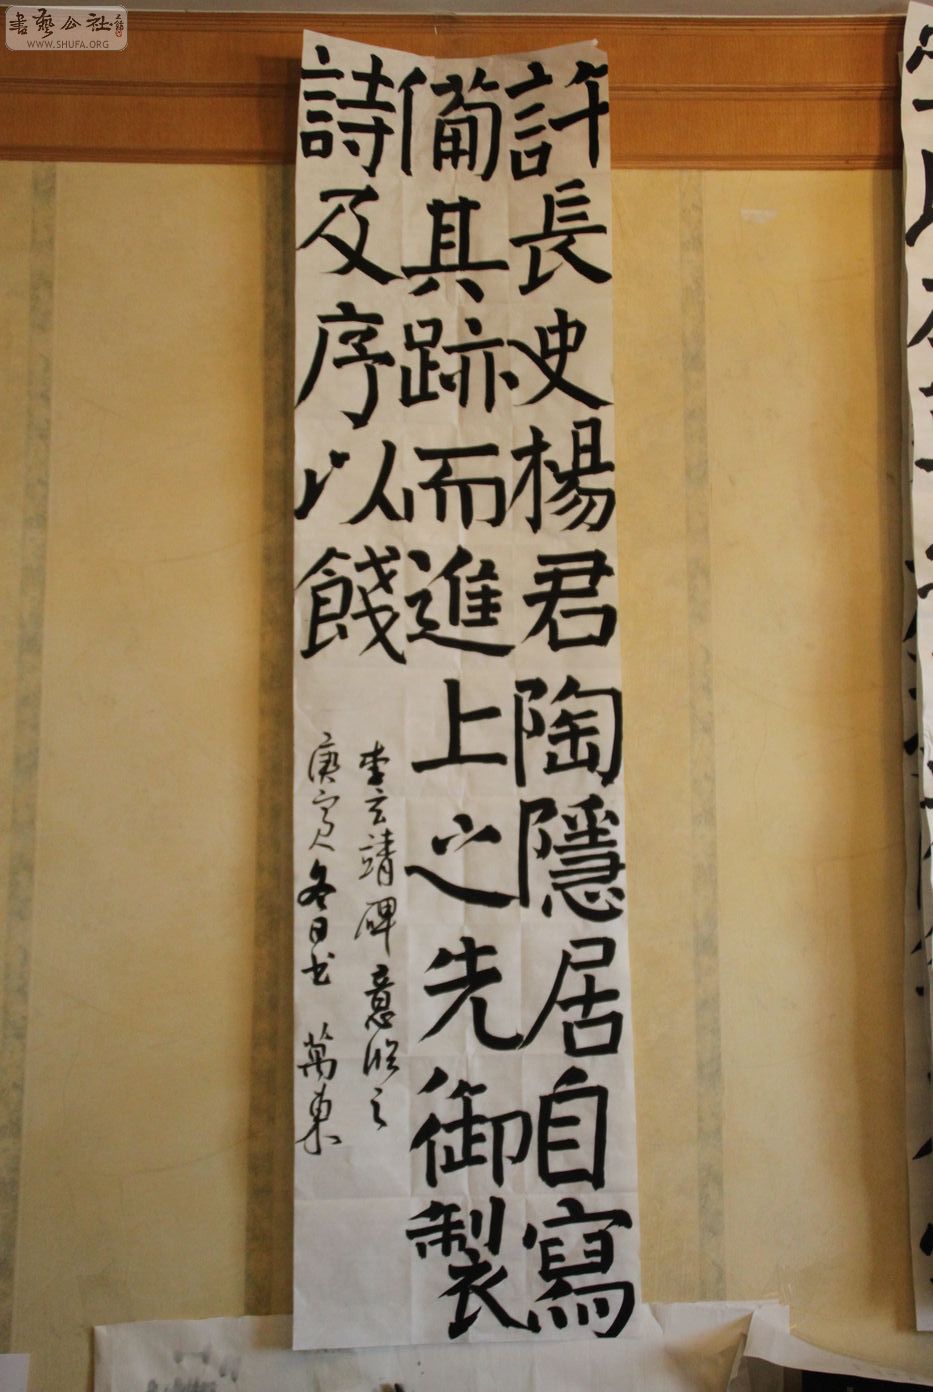 書藝公社
WWW.SHUFA.ORG
許長史楊君陶隱居自寫
備其跡而進上之先御製
詩及序以餞
李玄靖碑意臨之
庚寅冬日書 萬東